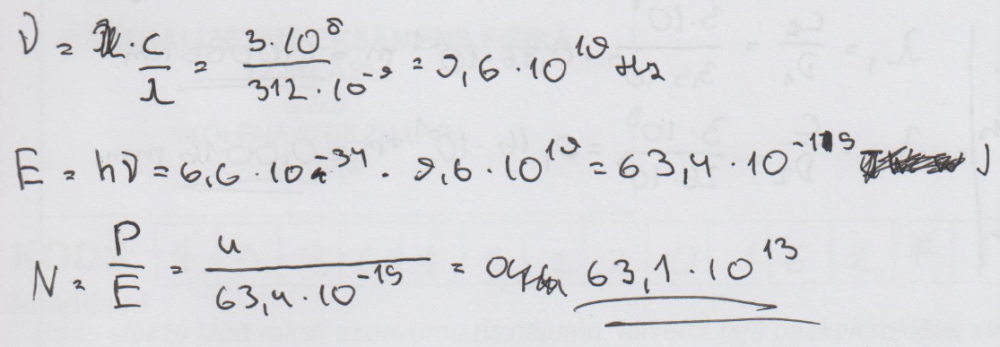 ν = c/λ = 3·10⁸/312·10⁻⁹ = 9,6·10¹⁹ Hz
E = hν = 6,6·10⁻³⁴ · 9,6·10¹⁹ = 63,4·10⁻¹⁵ J
N = P/E = 4/63,4·10⁻¹⁵ = 63,1·10¹³